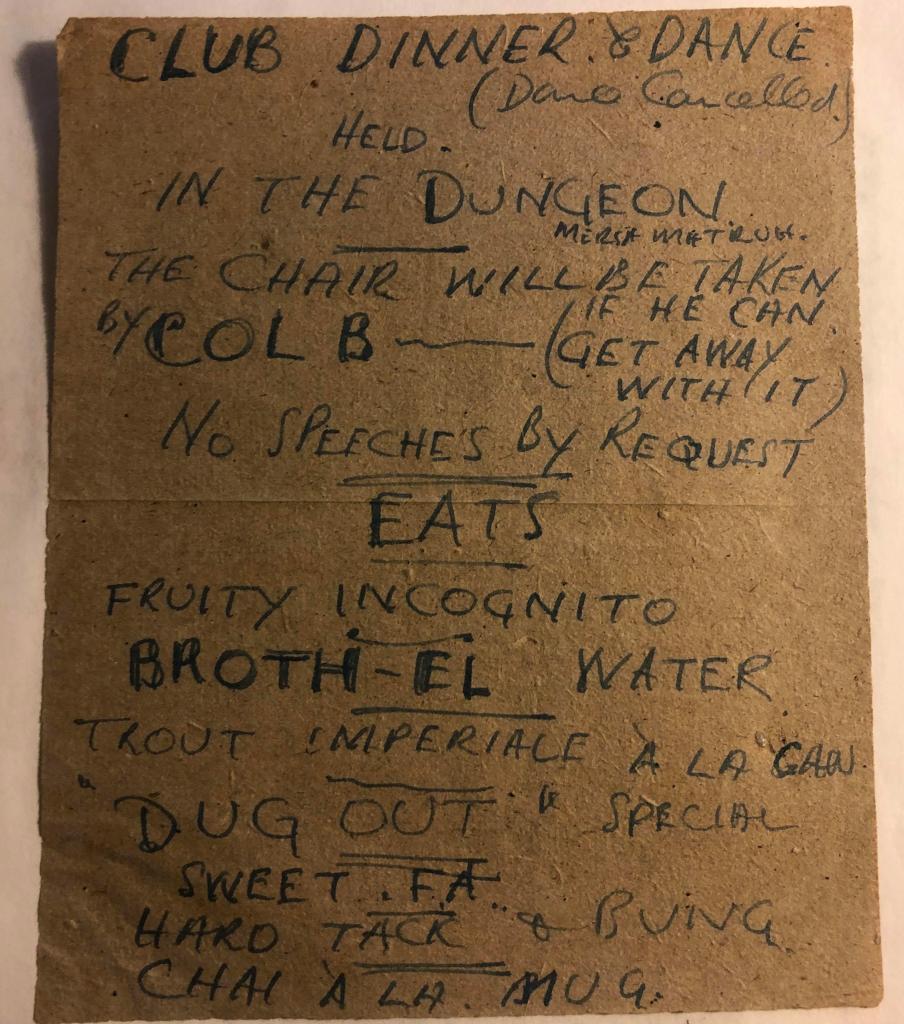 CLUB DINNER & DANCE
(Dance Cancelled.)
HELD.
IN THE DUNGEON.
MERSA MATRUH.
THE CHAIR WILL BE TAKEN
BY COL B — (IF HE CAN.
GET AWAY
WITH IT)
NO SPEECHE'S BY REQUEST
EATS
FRUITY INCOGNITO
BROTH-EL WATER
TROUT IMPERIALE A LA CAN
"DUG OUT" SPECIAL
SWEET . F.A.
HARD TACK & BUNG.
CHAI A LA. MUG.